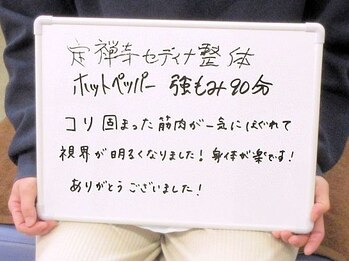 定禅寺セディナ整体
ホットペッパー 強もみ90分
コリ固まった筋肉が一気にほぐれて
視界が明るくなりました！身体が楽です！
ありがとうございました！